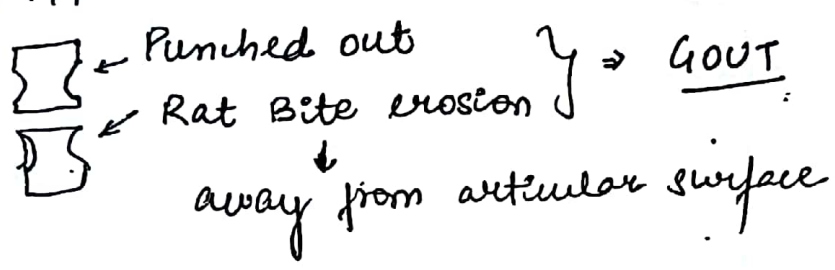 Punched out
Rat Bite erosion } ⇒ GOUT
↓
away from articular surface